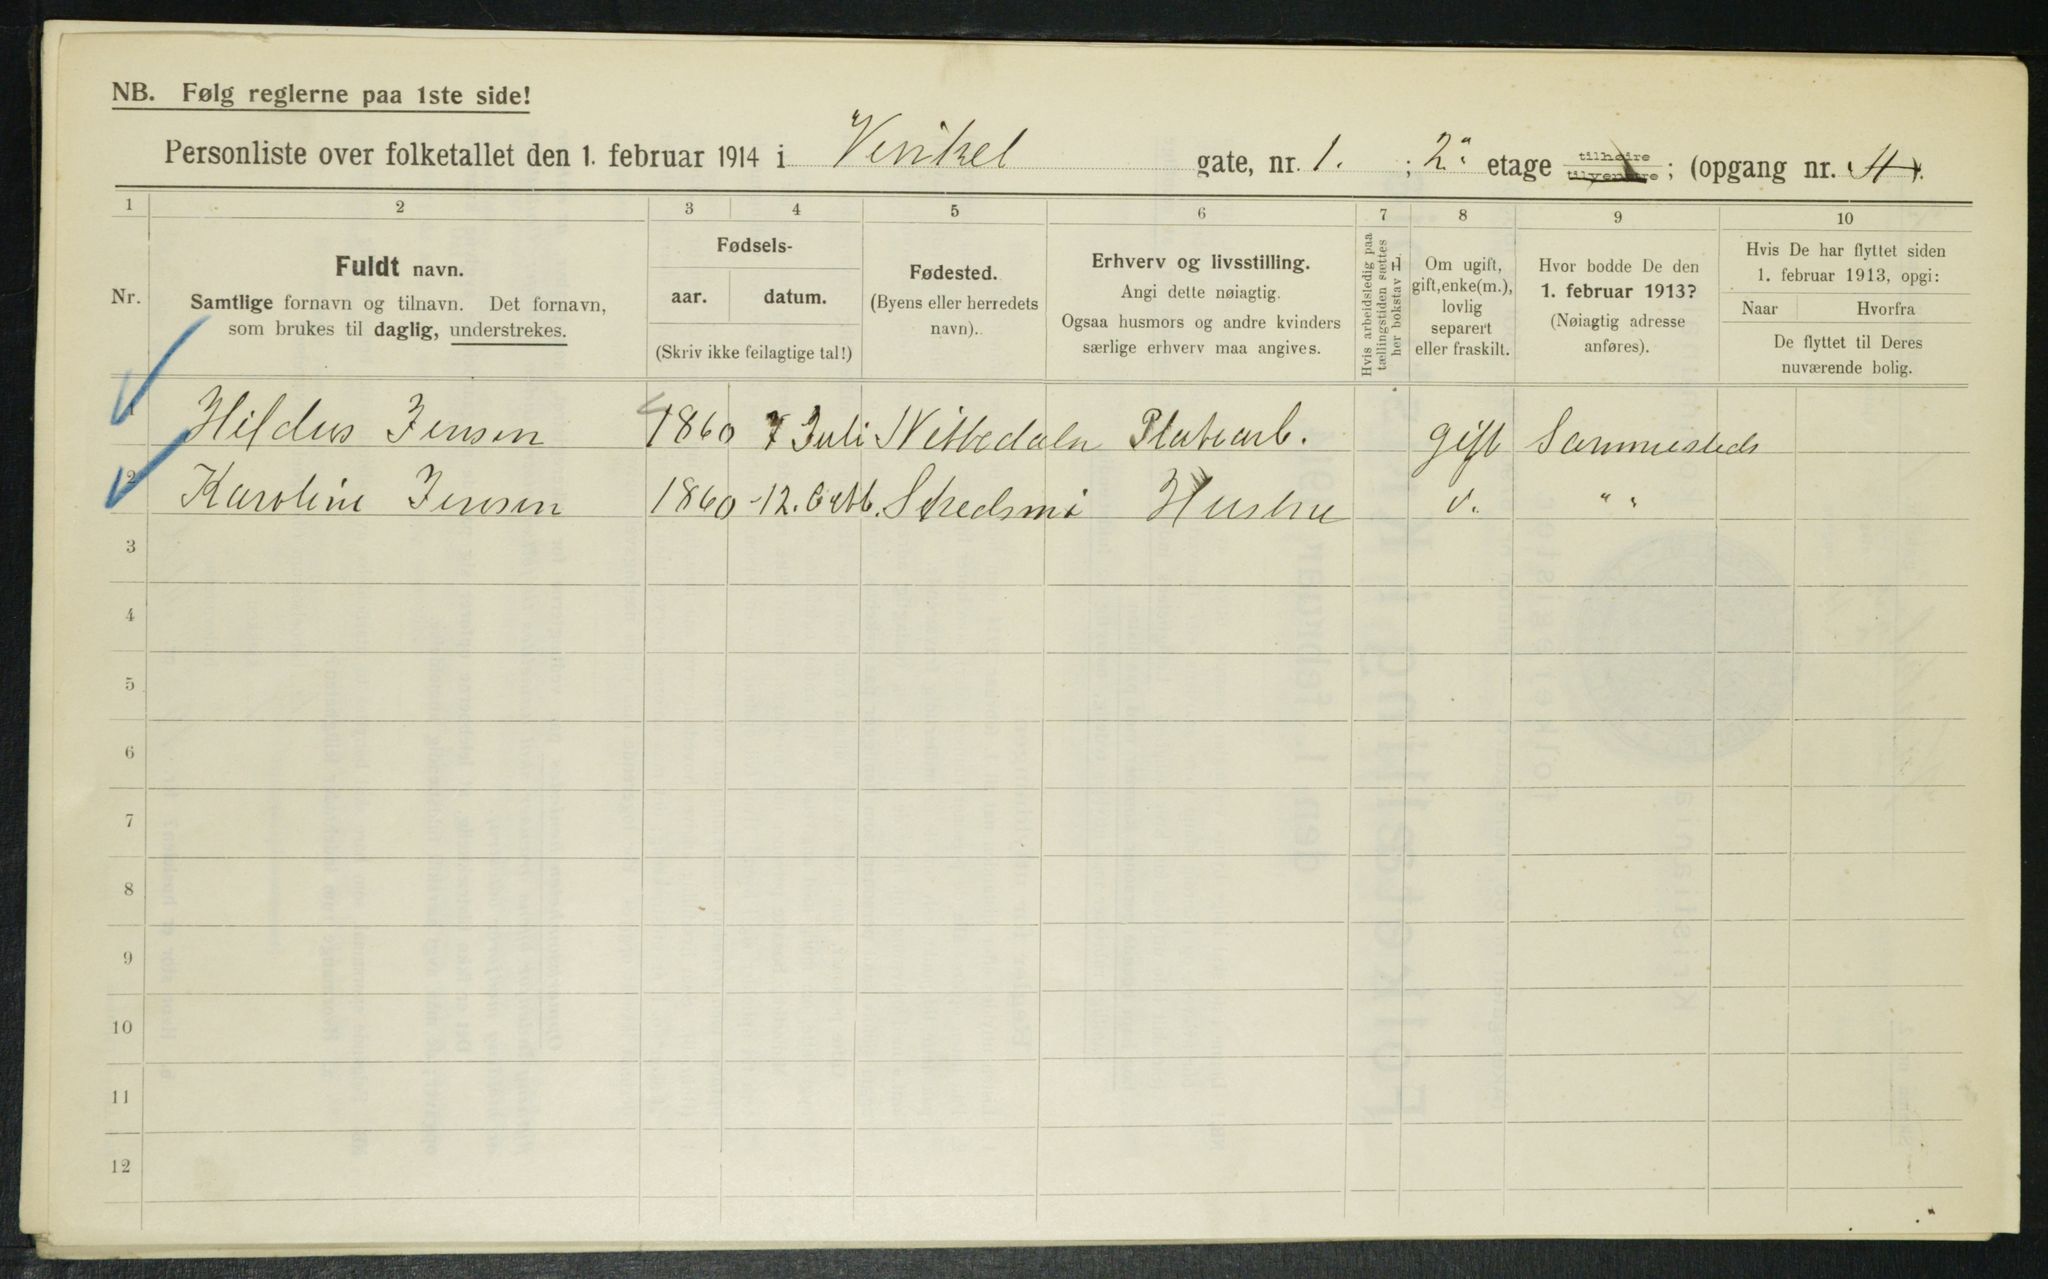 NB. Følg reglerne paa 1ste side!
Personliste over folketallet den 1. februar 1914 i Vinkel gate, nr. 1. ; 2" etage tilhøire tilvenstre ; (opgang nr. ).
1 2 3 4 5 6 7 8 9 10
Nr.
Fuldt navn.
Samtlige fornavn og tilnavn. Det fornavn,
som brukes til daglig, understrekes.
Fødsels-
aar. datum.
(Skriv ikke feilagtige tal!)
Fødested.
(Byens eller herredets
navn).
Erhverv og livsstilling.
Angi dette nøiagtig.
Ogsaa husmors og andre kvinders
særlige erhverv maa angives.
Hvis arbeidsledig paa
tællingstiden sættes
her bokstav L
Om ugift,
gift, enke(m.),
lovlig
separert
eller fraskilt.
Hvor bodde De den
1. februar 1913?
(Nøiagtig adresse
anføres).
Hvis De har flyttet siden
1. februar 1913, opgi:
Naar Hvorfra
De flyttet til Deres
nuværende bolig.
1 Jensen 1860 7 Juli Nittedalen Platearb. gift Sammesteds
2 Karoline Jensen 1860 -12. Octb. Skedsmo Hustru v. " "
3
4
5
6
7
8
9
10
11
12